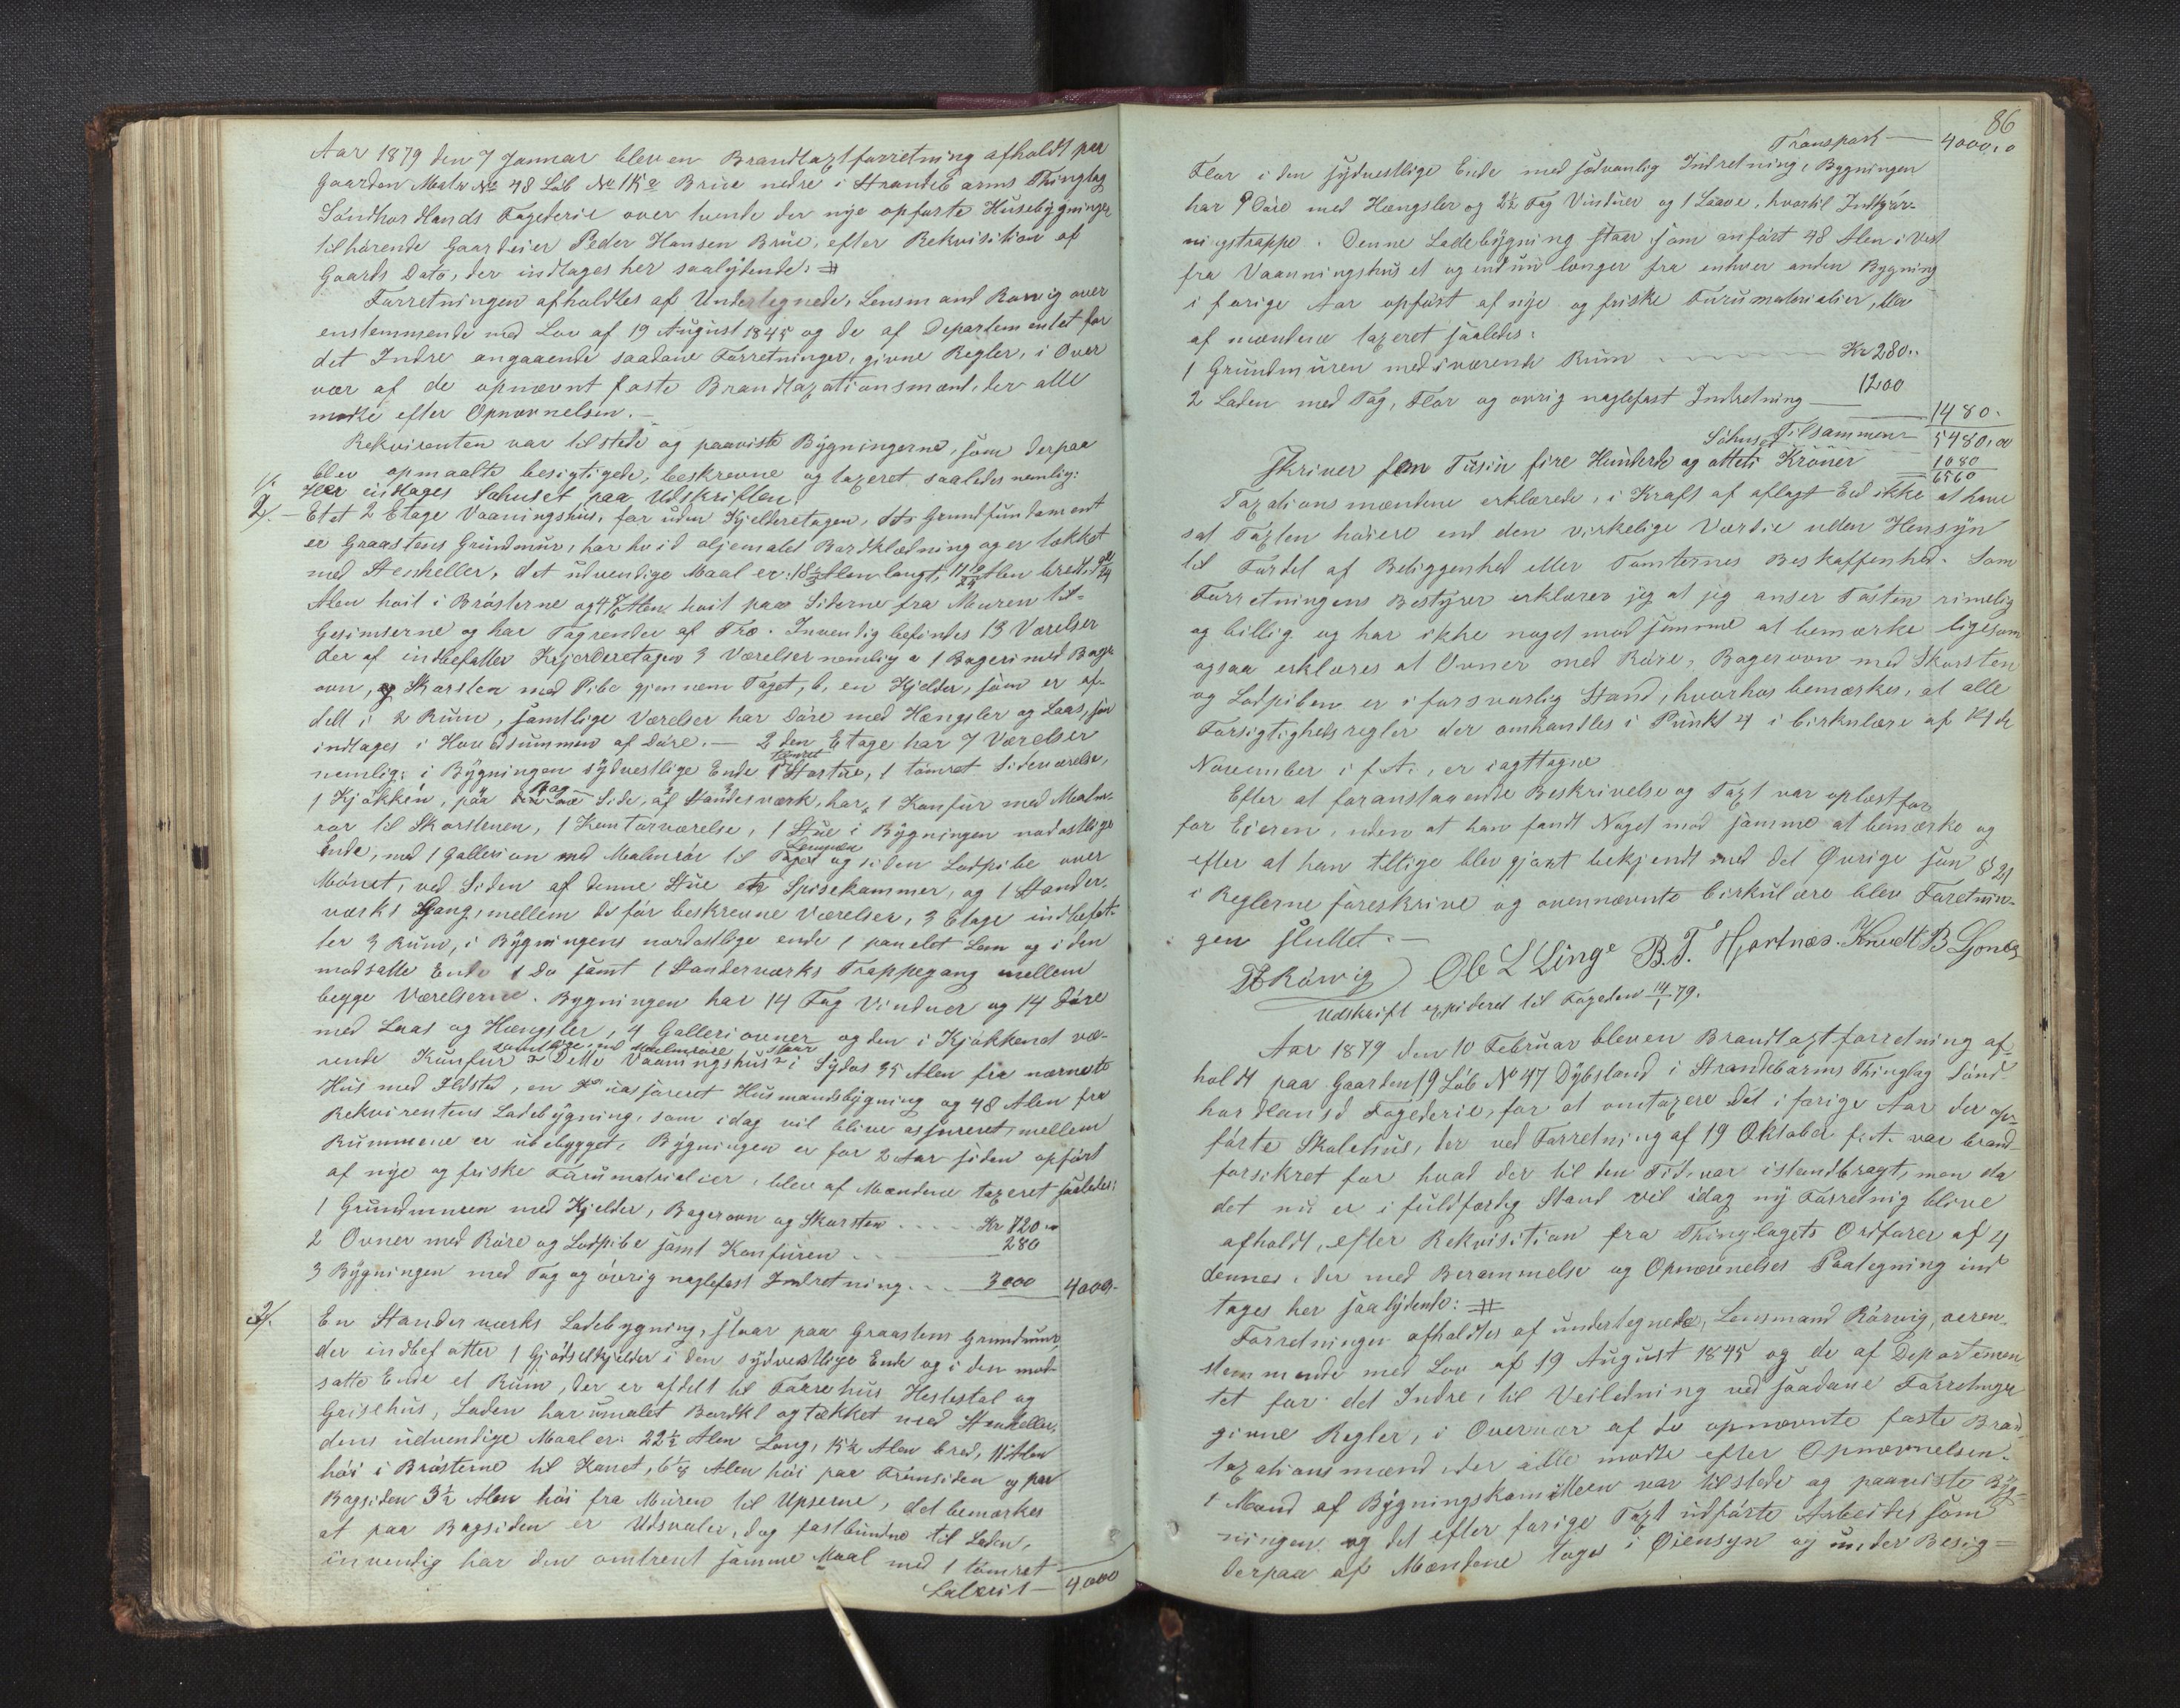 Aar 1879 den 7 Januar blev en Brandtaxtforretning afholdt paa
Gaarden Matr No 48 Løb No 115a Brue nedre i Strandebarms Thinglag
Söndhordlands Fogederie over tvende der nye opførte Husebygninger
tilhørende Gaardeier Peder Hansen Brue, efter Rekvisition af
Gaards Dato, der indtages her saalydende: #
Forretningen afholdtes af Undertegnede, Lensmand Rørvig over
enstemmende med Lov af 19 August 1845 og de af Departementet for
det Indre angaaende saadane Forretninger, givne Regler, i Over
vær af de opnævnt faste Brandtaxationsmænd, der alle
mødte efter Opnævnelsen. —
Rekvirenten var tilstede og paaviste Bygningerne, som derpaa
blev opmaalte besigtigede, beskrevne og taxeret saaledes nemlig:
1/. Her indtages Søhuset paa Udskriften.
2/. — Et et 2 Etage Vaaningshus, for uden Kjelderetagen, dets Grundfundament
er Graastens Grundmur, har hvid oljemalet Bordklædning og er tækket
med Stenheller, det udvendige Maal er: 18 1/3 Alen langt, 11 Alen bredt,
Alen høit i Brösterne og 4 Alen høit paa Siderne fra Muren til
Gesimserne og har Tagrender af Træ. Invendig befindes 13 Værelser
der af indbefatter Kjelderetagen 3 Værelser nemlig a 1 Bageri med Bager
ovn, og Skorsten med Pibe gjennem Taget, b, en Kjelder, som er af-
delt i 2 Rum, samtlige Værelser har Døre med Hængsler og Laas, som
indtages i Hovedsummen af Døre. — 2den Etage har 7 Værelser
nemlig: i Bygningen sydvestlige Ende 1 tømret Storstue, 1 tømret Sideværelse,
1 Kjøkken, paa Bag Side, af Standerværk, har 1 Komfur med Malm-
rør til Skorstenen, 1 Kontorværelse, 1 Stue i Bygningen nordostlige
Ende, med 1 Galleriovn med Malmrør til og siden Lodpibe over
Mønet, ved Siden af denne Stue et Spisekammer, og 1 Stander-
værks Gang, mellem de før beskrevne Værelser, 3 Etage indbefat-
ter 3 Rum, i Bygningens nordostlige ende 1 panelet Lem og i den
modsatte Ende 1 Do samt 1 Standerværks Trappegang mellem
begge Værelserne. Bygningen har 14 Fag Vinduer og 14 Døre
med Laas og Hængsler, 4 Galleriovner og den i Kjøkkenet væ-
rende Komfur samtlige med Malmrøre Dette Vaaningshus staar i Sydos 35 Alen fra nærmeste
Hus med Ildsted, en uasjureret Husmandsbygning og 48 Alen fra
Rekvirentens Ladebygning, som idag vil blive assureret, mellem
Rummene er ubebygget, Bygningen er for 2 Aar siden opført
af nye og friske Furumaterialier, blev af Mændene taxeret saaledes:
1 Grundmuren med Kjelder, Bagerovn og Skorsten . . . . Kr 720 "
2 Ovner med Røre og Lodpibe samt Komfuren . . 280
3 Bygningen med Tag og øvrig naglefast Indretning. . . 3000 4000.
3/. En Standerværks Ladebygning, staar paa Graastens Grundmur,
der indbefatter 1 Gjødselkjelder i den sydvestlige Ende og i den mod-
satte Ende et Rum, der er afdelt til Faarehus Hestestal og
Grisehus, Laden har umalet Bordkl og tækket med Stenheller,
dens udvendige Maal er: 22 1/2 Alen Lang, 15 1/2 Alen bred, 11 Alen
høi i Brøsterne til Kanet, 6 1/8 Alen høi paa Frimsiden og paa
Bagsiden 3 1/2 Alen høi fra Muren til Upserne, det bemærkes
at paa Bagsiden er Udsvaler, dog fastbundne til Laden,
invendig har den omtrent samme Maal med 1 tömret
Lateris — 4000
86
Transport — 4000,0
Flor i den sydvestlige Ende med sedvanlig Indretning, Bygningen
har 9 Døre med Hængsler og 2 1/2 Fag Vinduer og 1 Laave, hvortil Indkjør-
ningstrappe. Denne Ladebygning staar som anført 48 Alen i Vest
fra Vaanningshuset og endnu længer fra enhver anden Bygning
i forige Aar opført af nye og friske Furumaterialier, blev
af mændene taxeret saaledes:
1 Grundmuren med iværende Rum — Kr 280 "
2 Laden med Tag, Flor og øvrig naglefast Indretning — 1200
1480.
Tilsammen — 5480,00
Søhuset 1080
Skriver fem Tusin fire Hunderde og otteti Kroner — 6560
Taxationsmændene erklærede, i Kraft af aflagt Eed ikke at have
sat Taxten høiere end den virkelige Værdie uden Hensyn
til Fordel af Beliggenhed eller Tomternes Beskaffenhed. Som
Forretningens Bestyrer erklærer jeg at jeg anser Taxten rimelig
og billig og har ikke noget mod samme at bemærke ligesom
ogsaa erklæres at Ovner med Røre, Bagerovn med Skorsten
og Lodpiben er i forsvarlig Stand, hvorhos bemærkes, at alle
Forsigtighedsregler der omhandles i Punkt 4 i Cirkulære af 14 de
November i f. A., er iagttagne
Efter at foranstaaende Beskrivelse og Taxt var oplæst for
for Eieren, uden at han fandt Noget mod samme at bemærke og
efter at han tillige blev gjort bekjendt med det Øvrige som § 21
i Reglerne foreskrive og ovennævnte Cirkulære blev Forretnin-
gen sluttet. —
Rörvig Ole L Linge B. T. Hjortnæs. Knudt B Ljones
Udskrift expideret til Fogeden 14/1 79.
Aar 1879 den 10 Februar blev en Brandtaxtforretning af-
holdt paa Gaarden 19 Løb No 47 Dybsland i Strandebarms Thinglag Sönd-
hordlansd Fogederie, for at omtaxere Det i forige Aar der op-
førte Skolehus, der ved Forretning af 19 Oktober f. A. var brand-
forsikret for hvad der til den Tid var istandbragt, men da
det nu er i fuldfærdig Stand vil idag ny Forretnig blive
afholdt, efter Rekvisition fra Thinglagets Ordfører af 4
dennes, der med Berammelse og Opnævnelses Paategning ind
tages her saalydende: #
Forretningen afholdtes af undertegnede, Lensmand Rörvig, overen-
stemmende med Lov af 19 August 1845 og de af Departemen
tet for det Indre, til Veiledning ved saadane Forretninger
givne Regler, i Overvær af de opnævnte faste Brand
taxationsmænd der alle mødte efter Opnævnelsen.
1 Mand af Bygningskomitteen var tilstede og paaviste Byg-
ningen og det efter forige Taxt udførte Arbeider som
derpaa af Mændene toges i Øiensyn og under Besig=